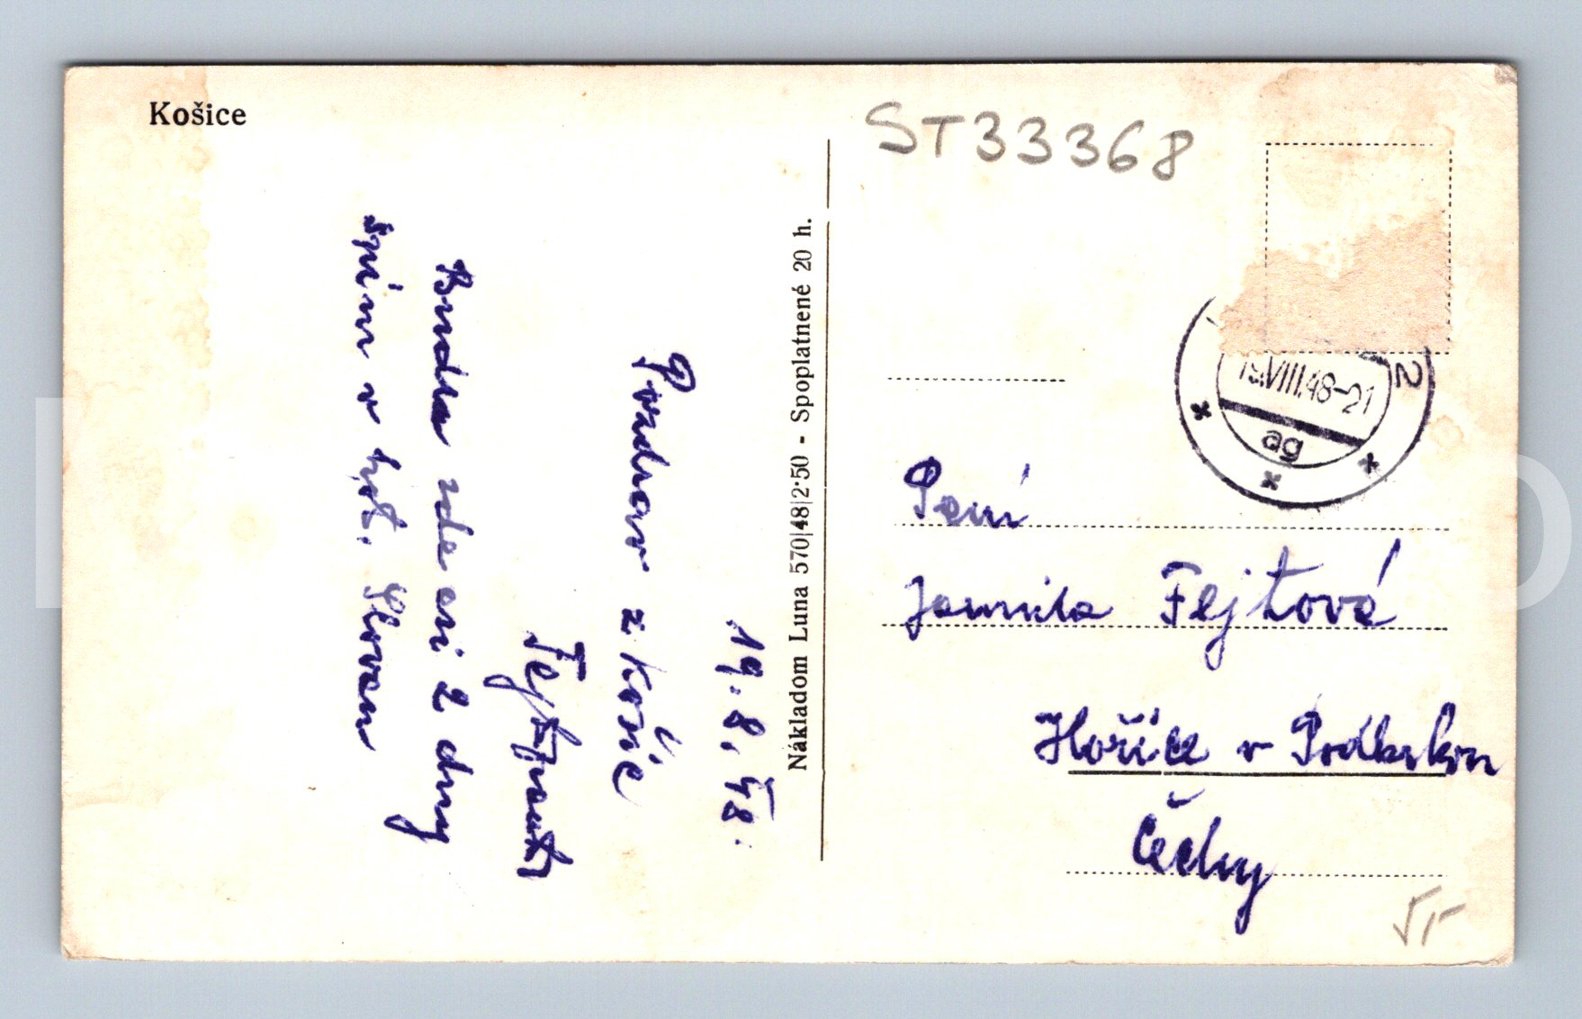 Košice
ST33368
19.8.48.
Pozdrav z Košic
Fejt
Budu zde asi 2 dny
spím v hot. Slovan
Nákladom Luna 570|48|2·50 - Spoplatnené 20 h.
2
19.VIII.48-21
ag
Paní
Jarmila Fejtová
Hořice v Podkrkon
Čechy